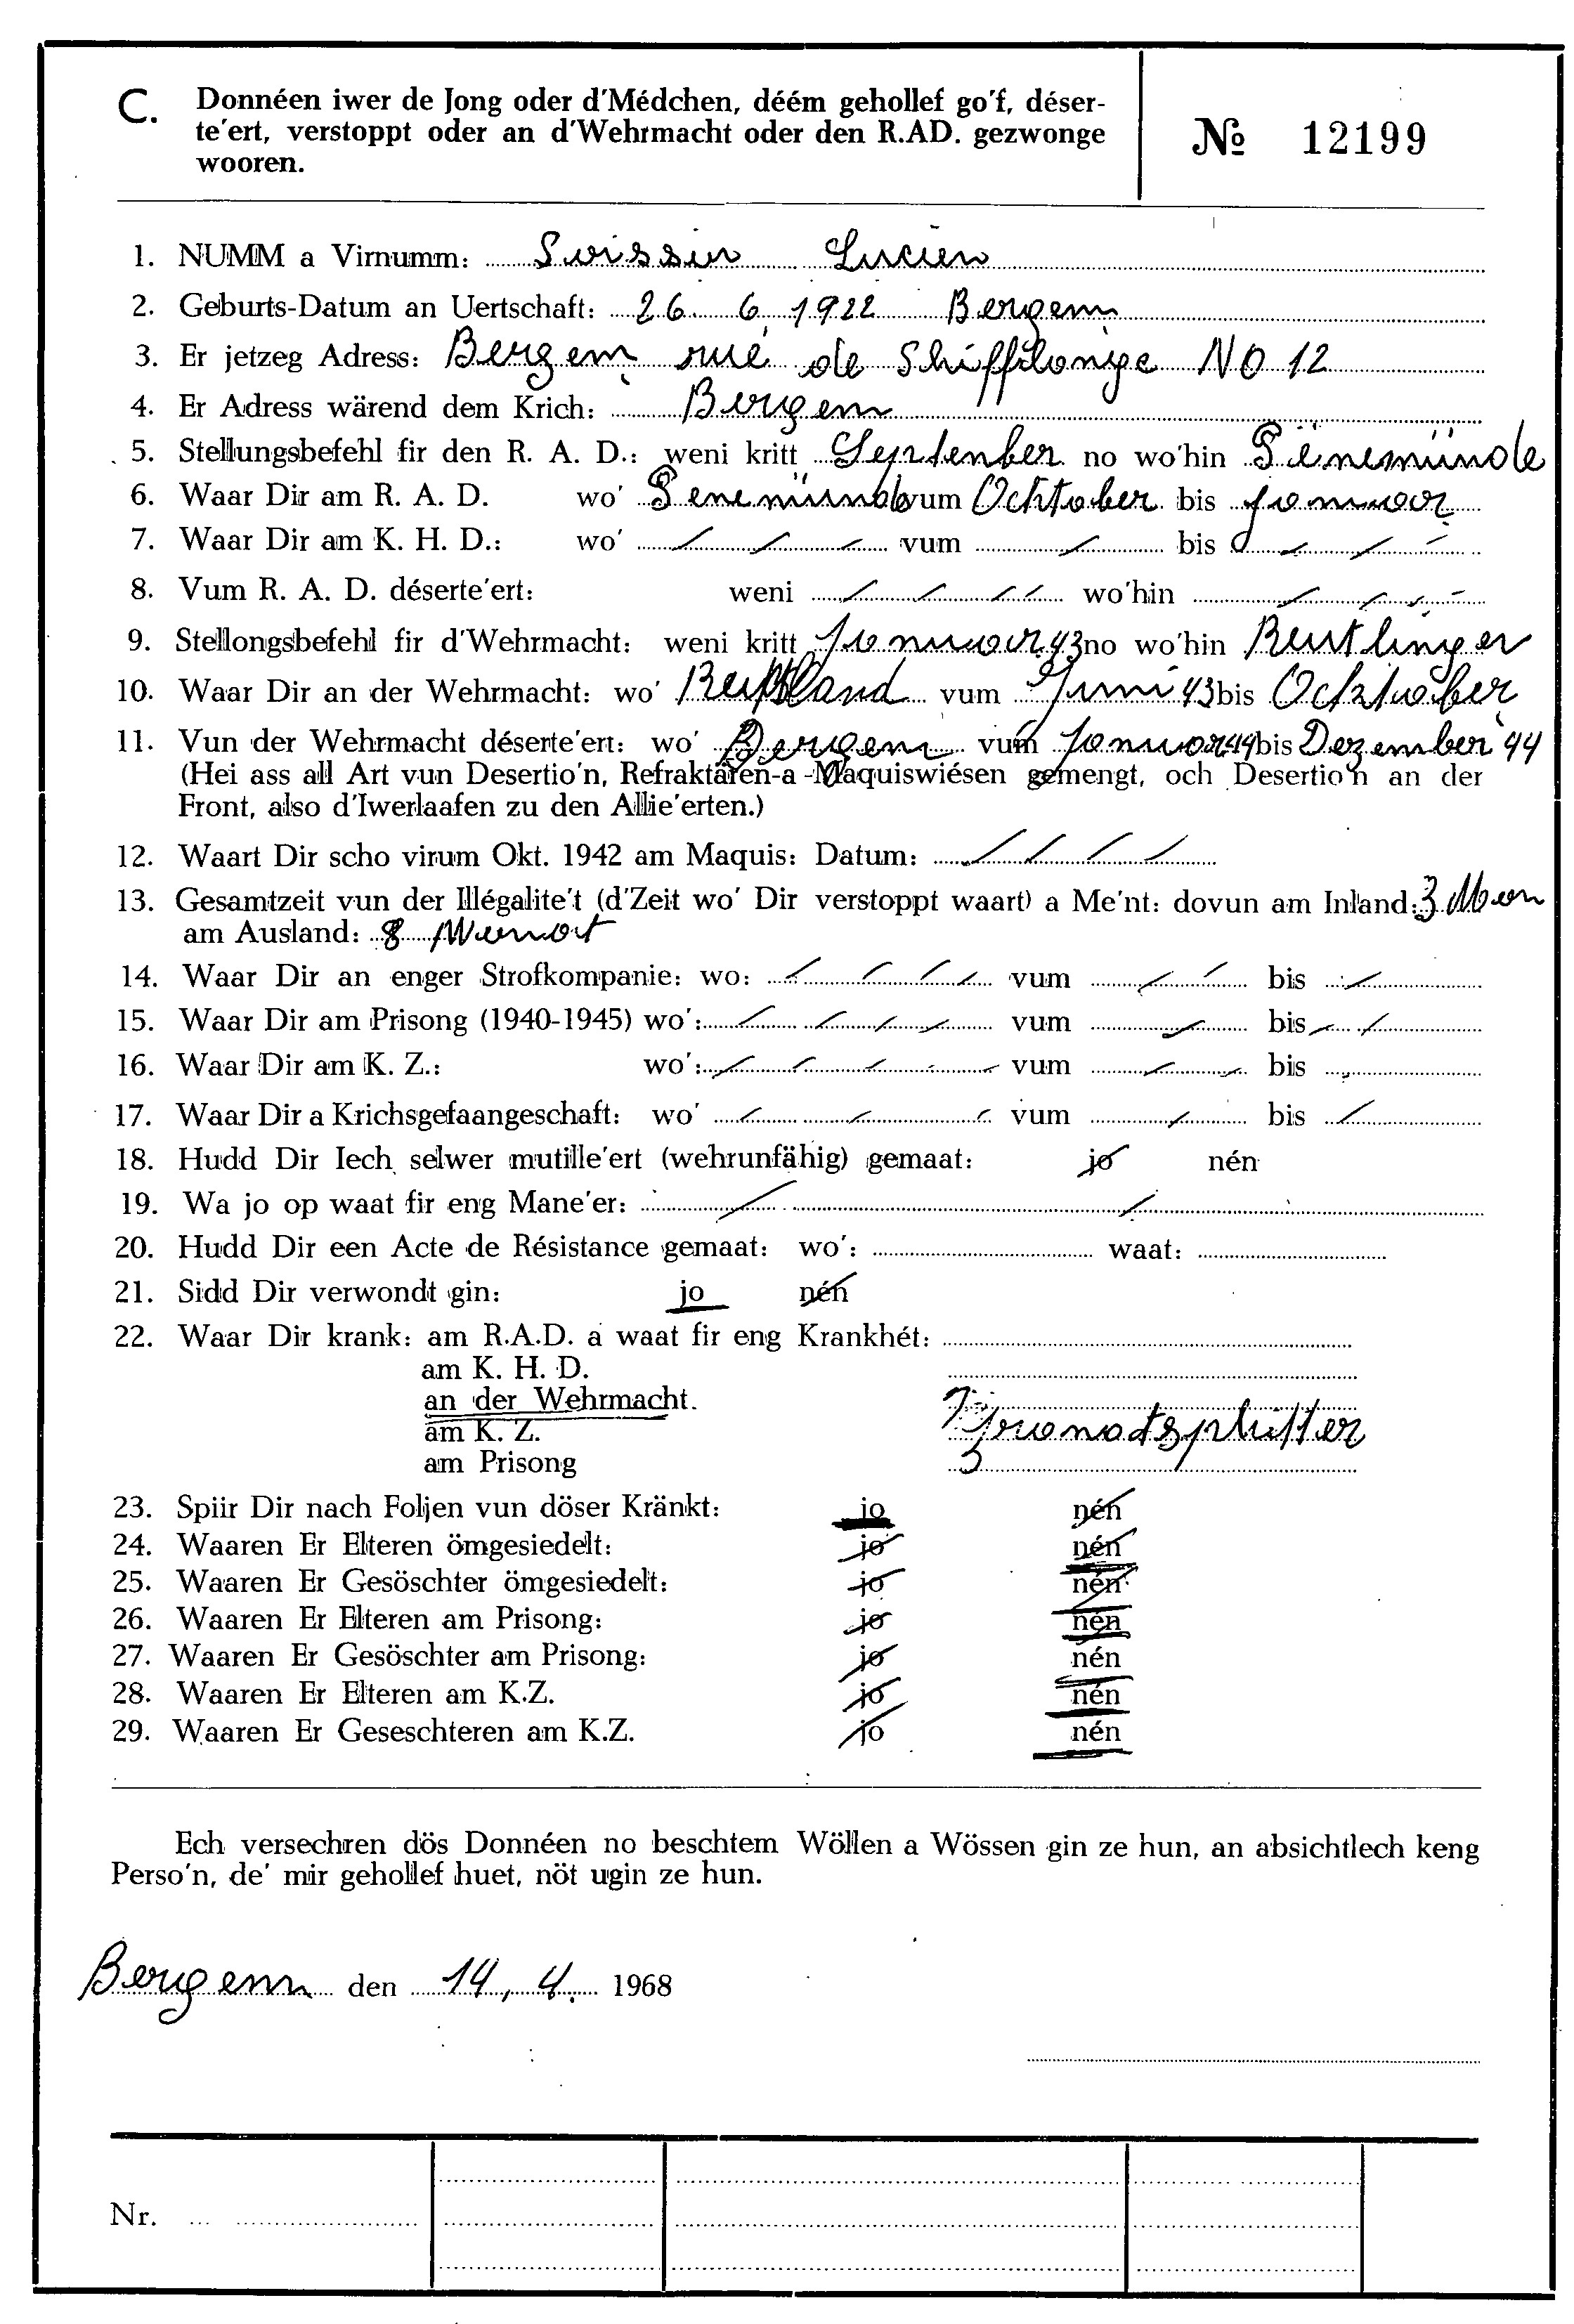 C. Donnéen iwer de Jong oder d'Médchen, déém gehollef go'f, déser-
te'ert, verstoppt oder an d'Wehrmacht oder den R.AD. gezwonge
wooren.
№ 12199
1. NUMM a Virnumm: Swissin Lucien
2. Geburts-Datum an Uertschaft: 26. 6. 1922 Bergem
3. Er jetzeg Adress: Bergem rue de Shifflonge NO 12
4. Er Adress wärend dem Krich: Bergem
5. Stellungsbefehl fir den R. A. D.: weni kritt September no wo'hin Pënemünde
6. Waar Dir am R. A. D. wo' Penemünde vum Ochtober bis Januar
7. Waar Dir am K. H. D.: wo' vum bis
8. Vum R. A. D. déserte'ert: weni wo'hin
9. Stellongsbefehl fir d'Wehrmacht: weni kritt Januar 43 no wo'hin Reutlingen
10. Waar Dir an der Wehrmacht: wo' Rußland vum Juni 43 bis Ocktober
11. Vun der Wehrmacht déserte'ert: wo' Bergem vum Januar 44 bis Dezember 44
(Hei ass all Art vun Desertio'n, Refraktären-a -Maquiswiésen gemengt, och Desertio'n an der
Front, also d'Iwerlaafen zu den Allie'erten.)
12. Waart Dir scho virum Okt. 1942 am Maquis: Datum:
13. Gesamtzeit vun der Illégalite't (d'Zeit wo' Dir verstoppt waart) a Me'nt: dovun am Inland: 3
am Ausland: 8
14. Waar Dir an enger Strofkompanie: wo: vum bis
15. Waar Dir am Prisong (1940-1945) wo': vum bis
16. Waar Dir am K. Z.: wo': vum bis
17. Waar Dir a Krichsgefaangeschaft: wo' vum bis
18. Hudd Dir Iech selwer mutille'ert (wehrunfähig) gemaat: jo nén
19. Wa jo op waat fir eng Mane'er:
20. Hudd Dir een Acte de Résistance gemaat: wo': waat:
21. Sidd Dir verwondt gin: jo nén
22. Waar Dir krank: am R.A.D. a waat fir eng Krankhét:
am K. H. D.
an der Wehrmacht.
am K. Z. Granatsplitter
am Prisong
23. Spiir Dir nach Foljen vun döser Kränkt: jo nén
24. Waaren Er Elteren ömgesiedelt: jo nén
25. Waaren Er Gesöschter ömgesiedelt: jo nén
26. Waaren Er Elteren am Prisong: jo nén
27. Waaren Er Gesöschter am Prisong: jo nén
28. Waaren Er Elteren am K.Z. jo nén
29. Waaren Er Geseschteren am K.Z. jo nén
Ech versechren dös Donnéen no beschtem Wöllen a Wössen gin ze hun, an absichtlech keng
Perso'n, de' mir gehollef huet, nöt ugin ze hun.
Bergem den 14, 4. 1968
Nr.